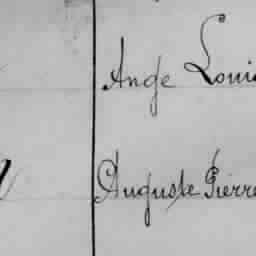 Ange Louis
Auguste Pierre